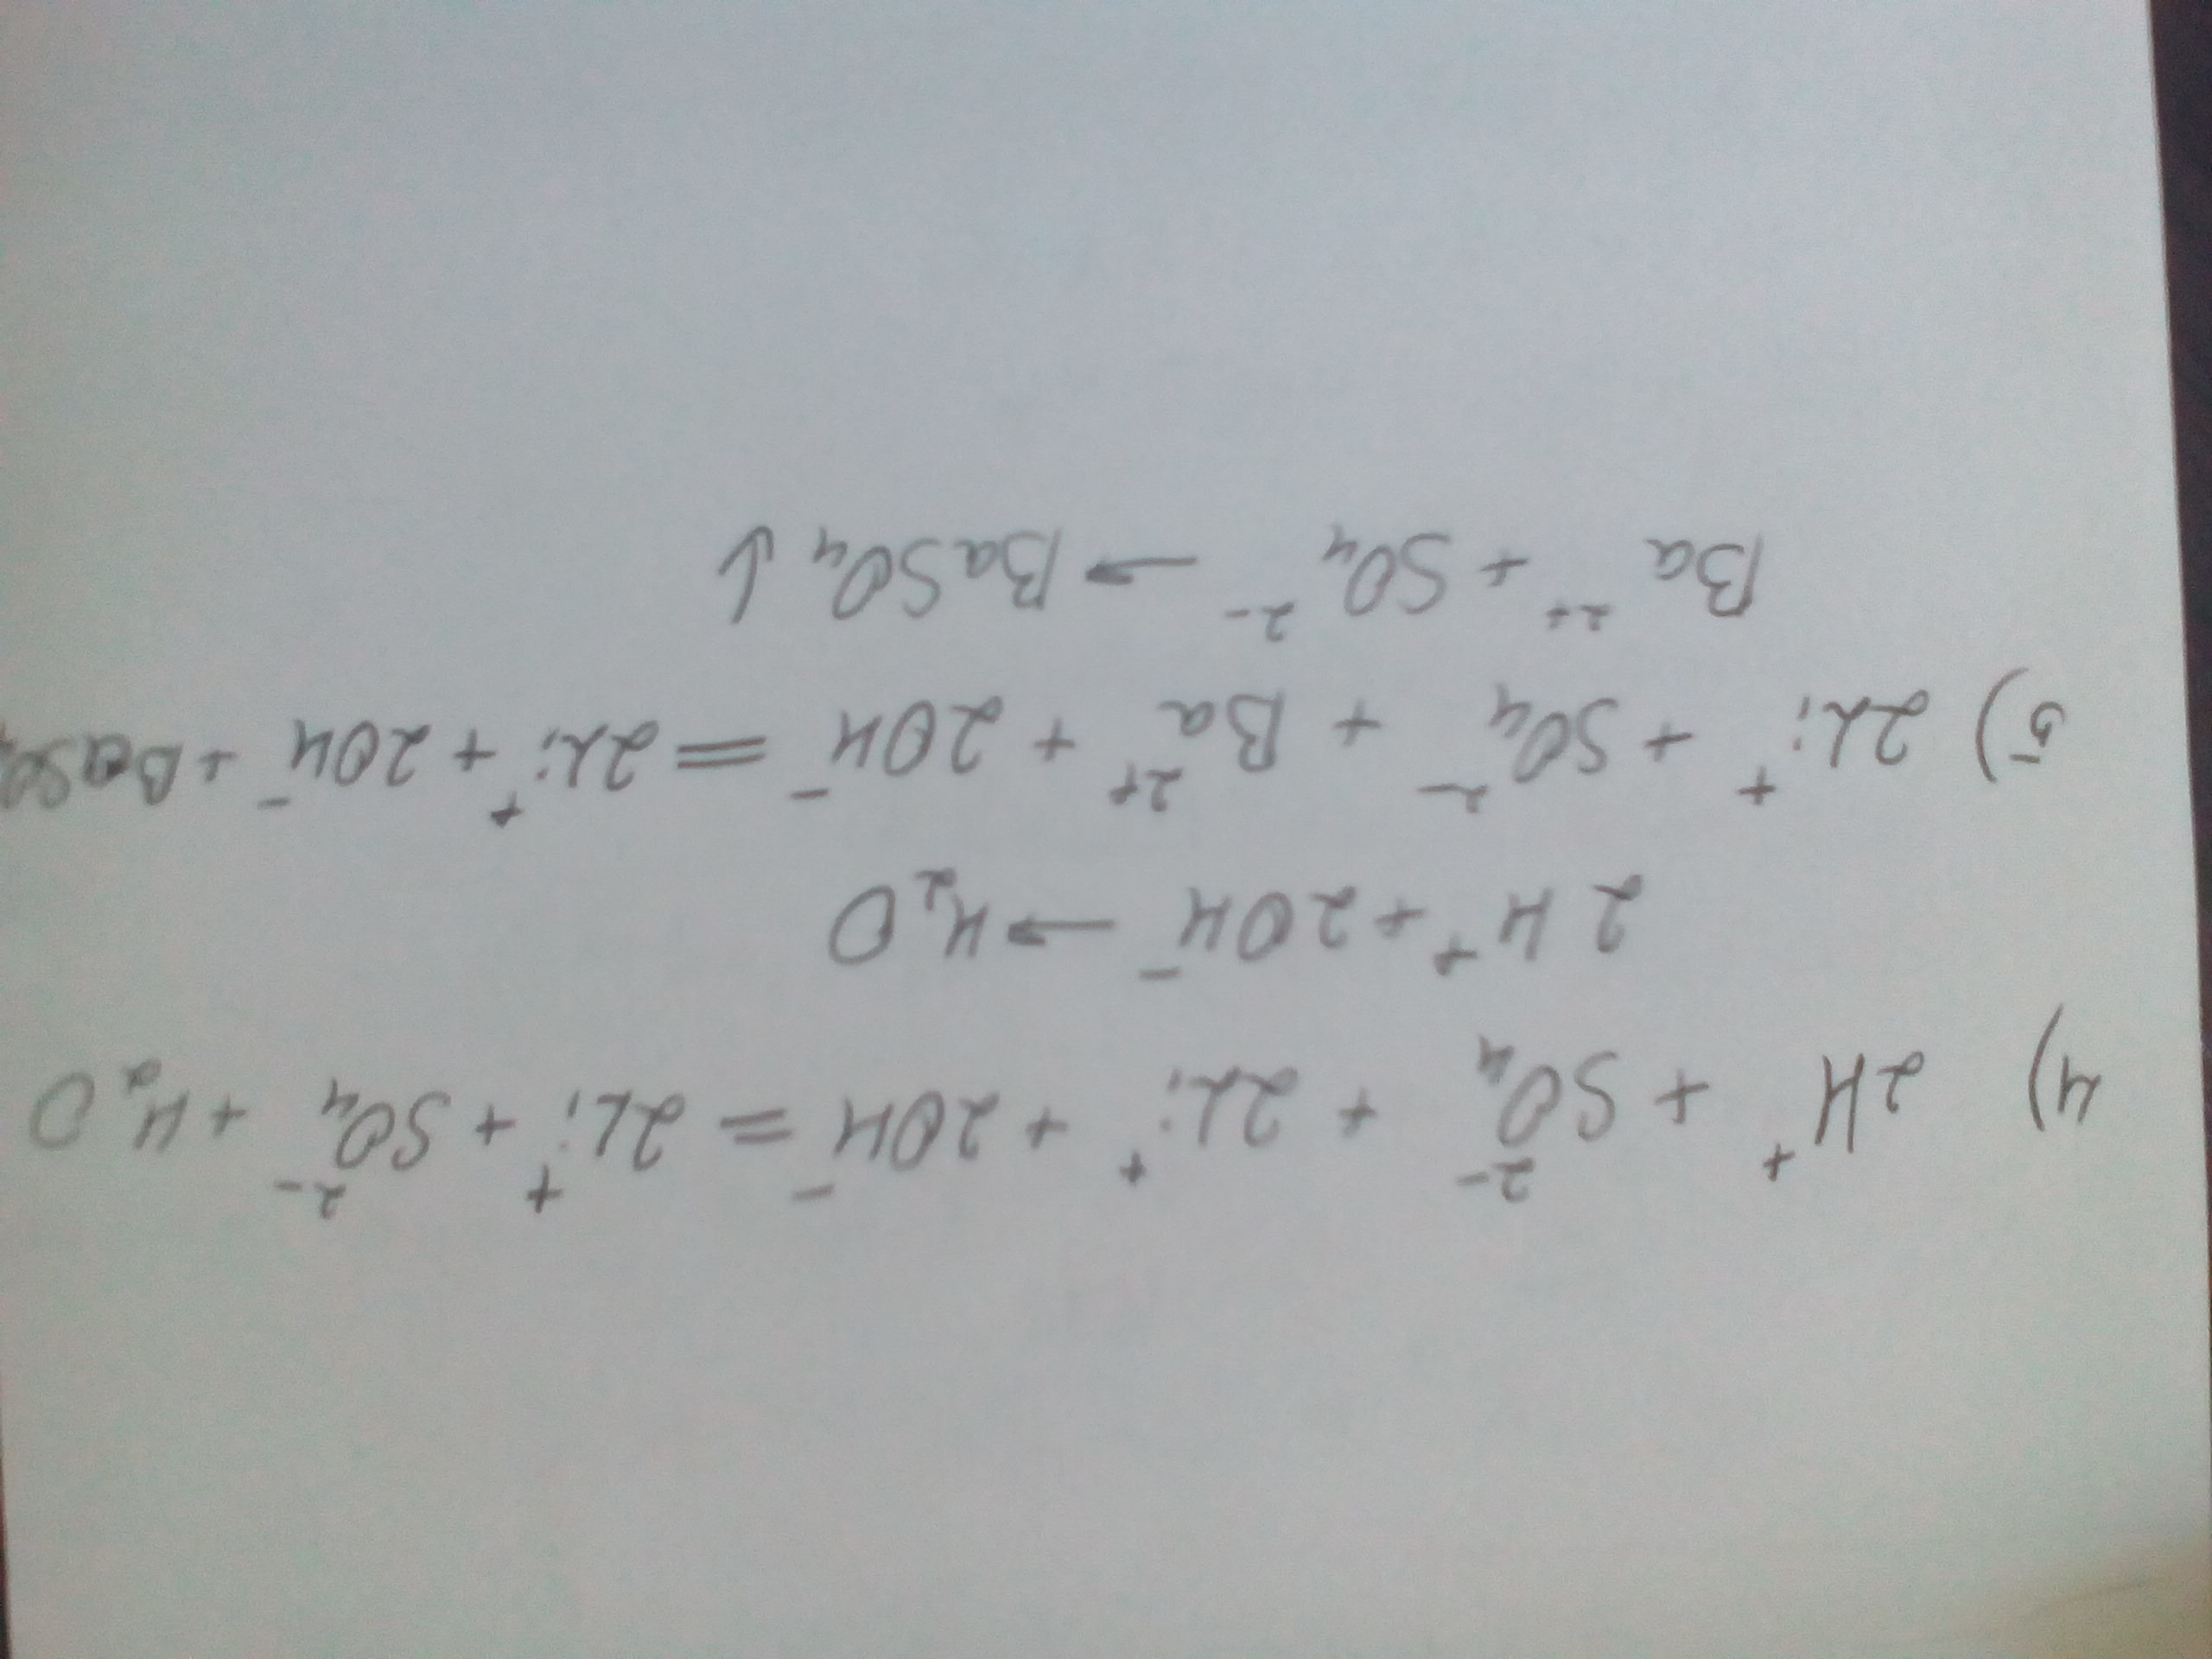 4) 2H⁺ + SO₄²⁻ + 2Li⁺ + 2OH⁻ = 2Li⁺ + SO₄²⁻ + H₂O
2H⁺ + 2OH⁻ → H₂O
5) 2Li⁺ + SO₄²⁻ + Ba²⁺ + 2OH⁻ = 2Li⁺ + 2OH⁻ + BaSO₄
Ba²⁺ + SO₄²⁻ → BaSO₄ ↓